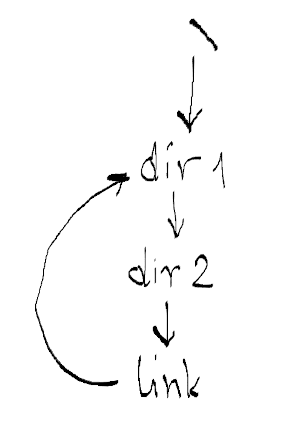 \
dir 1
dir 2
link